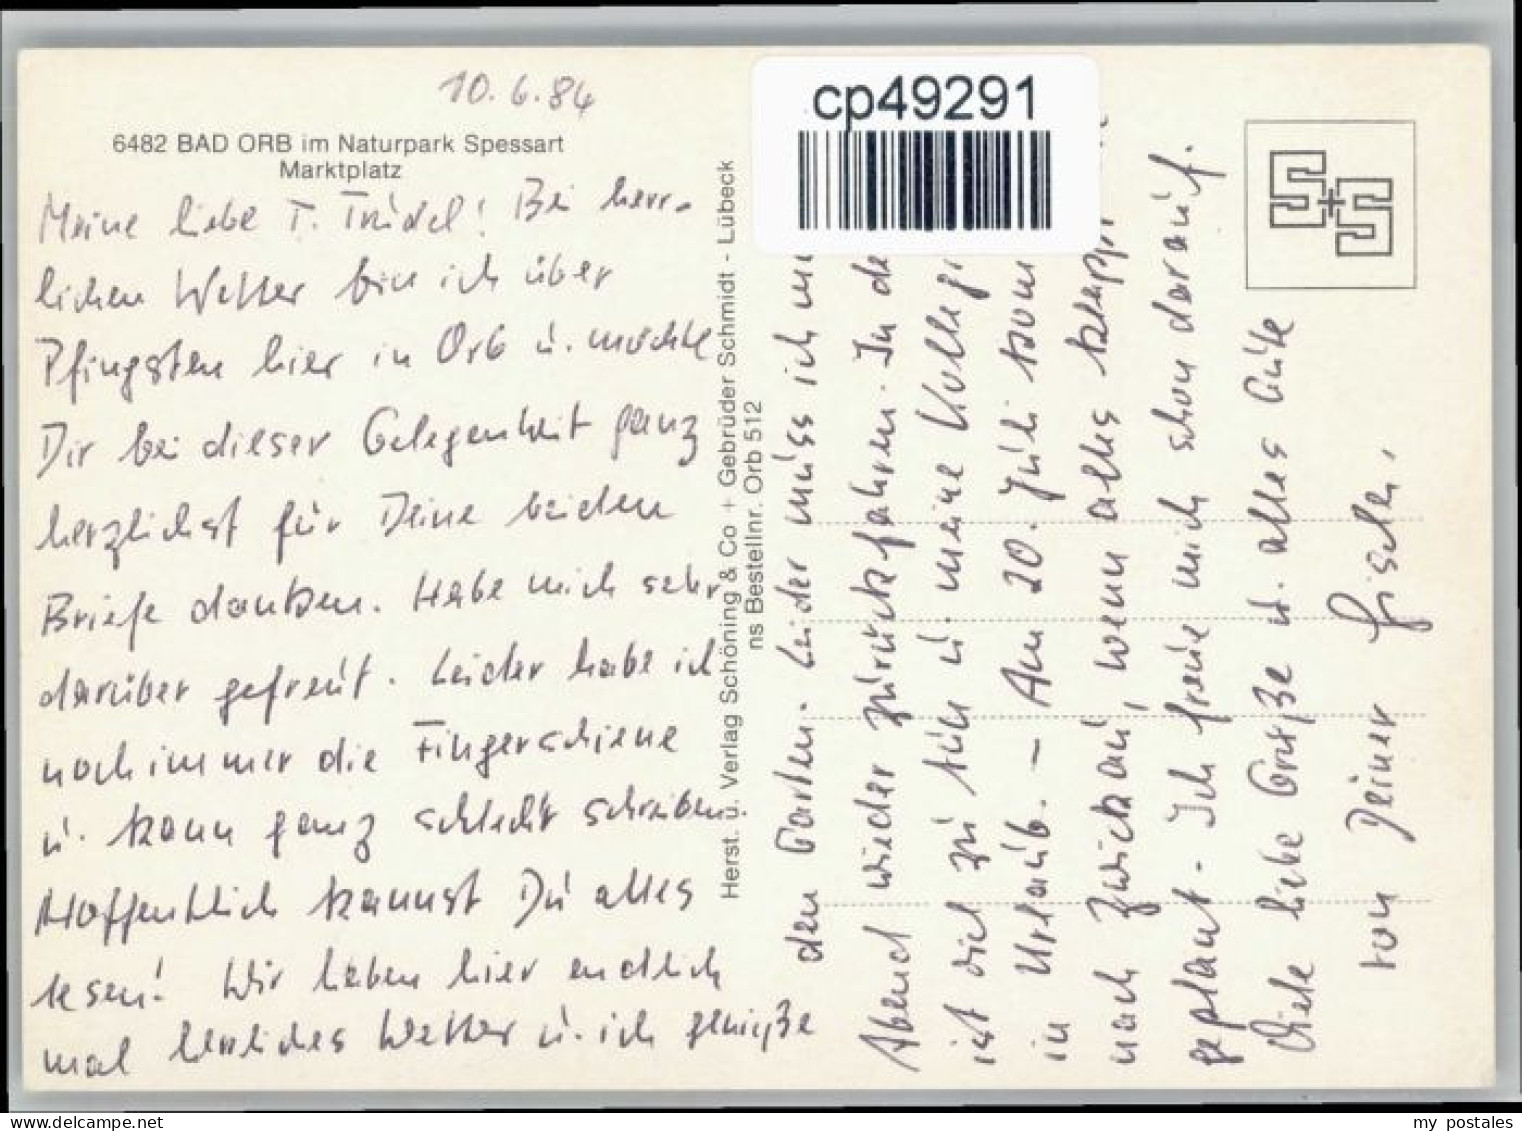 10.6.84
6482 BAD ORB im Naturpark Spessart
Marktplatz
Meine liebe T. Trudel! Bei herr-
lichen Wetter bin ich über
Pfingsten hier in Orb u. möchte
Dir bei dieser Gelegenheit ganz
herzlichst für Deine beiden
Briefe danken. Habe mich sehr
darüber gefreut. Leider habe ich
noch immer die Fingerschiene
u. kann ganz schlecht schreiben.
Hoffentlich kannst Du alles
lesen! Wir haben hier endlich
mal herrliches Wetter u. ich genieße
Herst. u. Verlag Schöning & Co + Gebrüder Schmidt - Lübeck
ns Bestellnr. Orb 512
cp49291
den Garten. Leider muss ich
Abend wieder zurückfahren. In
ist viel zu tun u. meine
in Urlaub. - Am 20. Juli
nach Zwickau, wenn alles klappt
geplant. Ich freue mich schon darauf.
Viele liebe Grüße u. alles Gute
von Deiner Gisela.
S+S
my postales